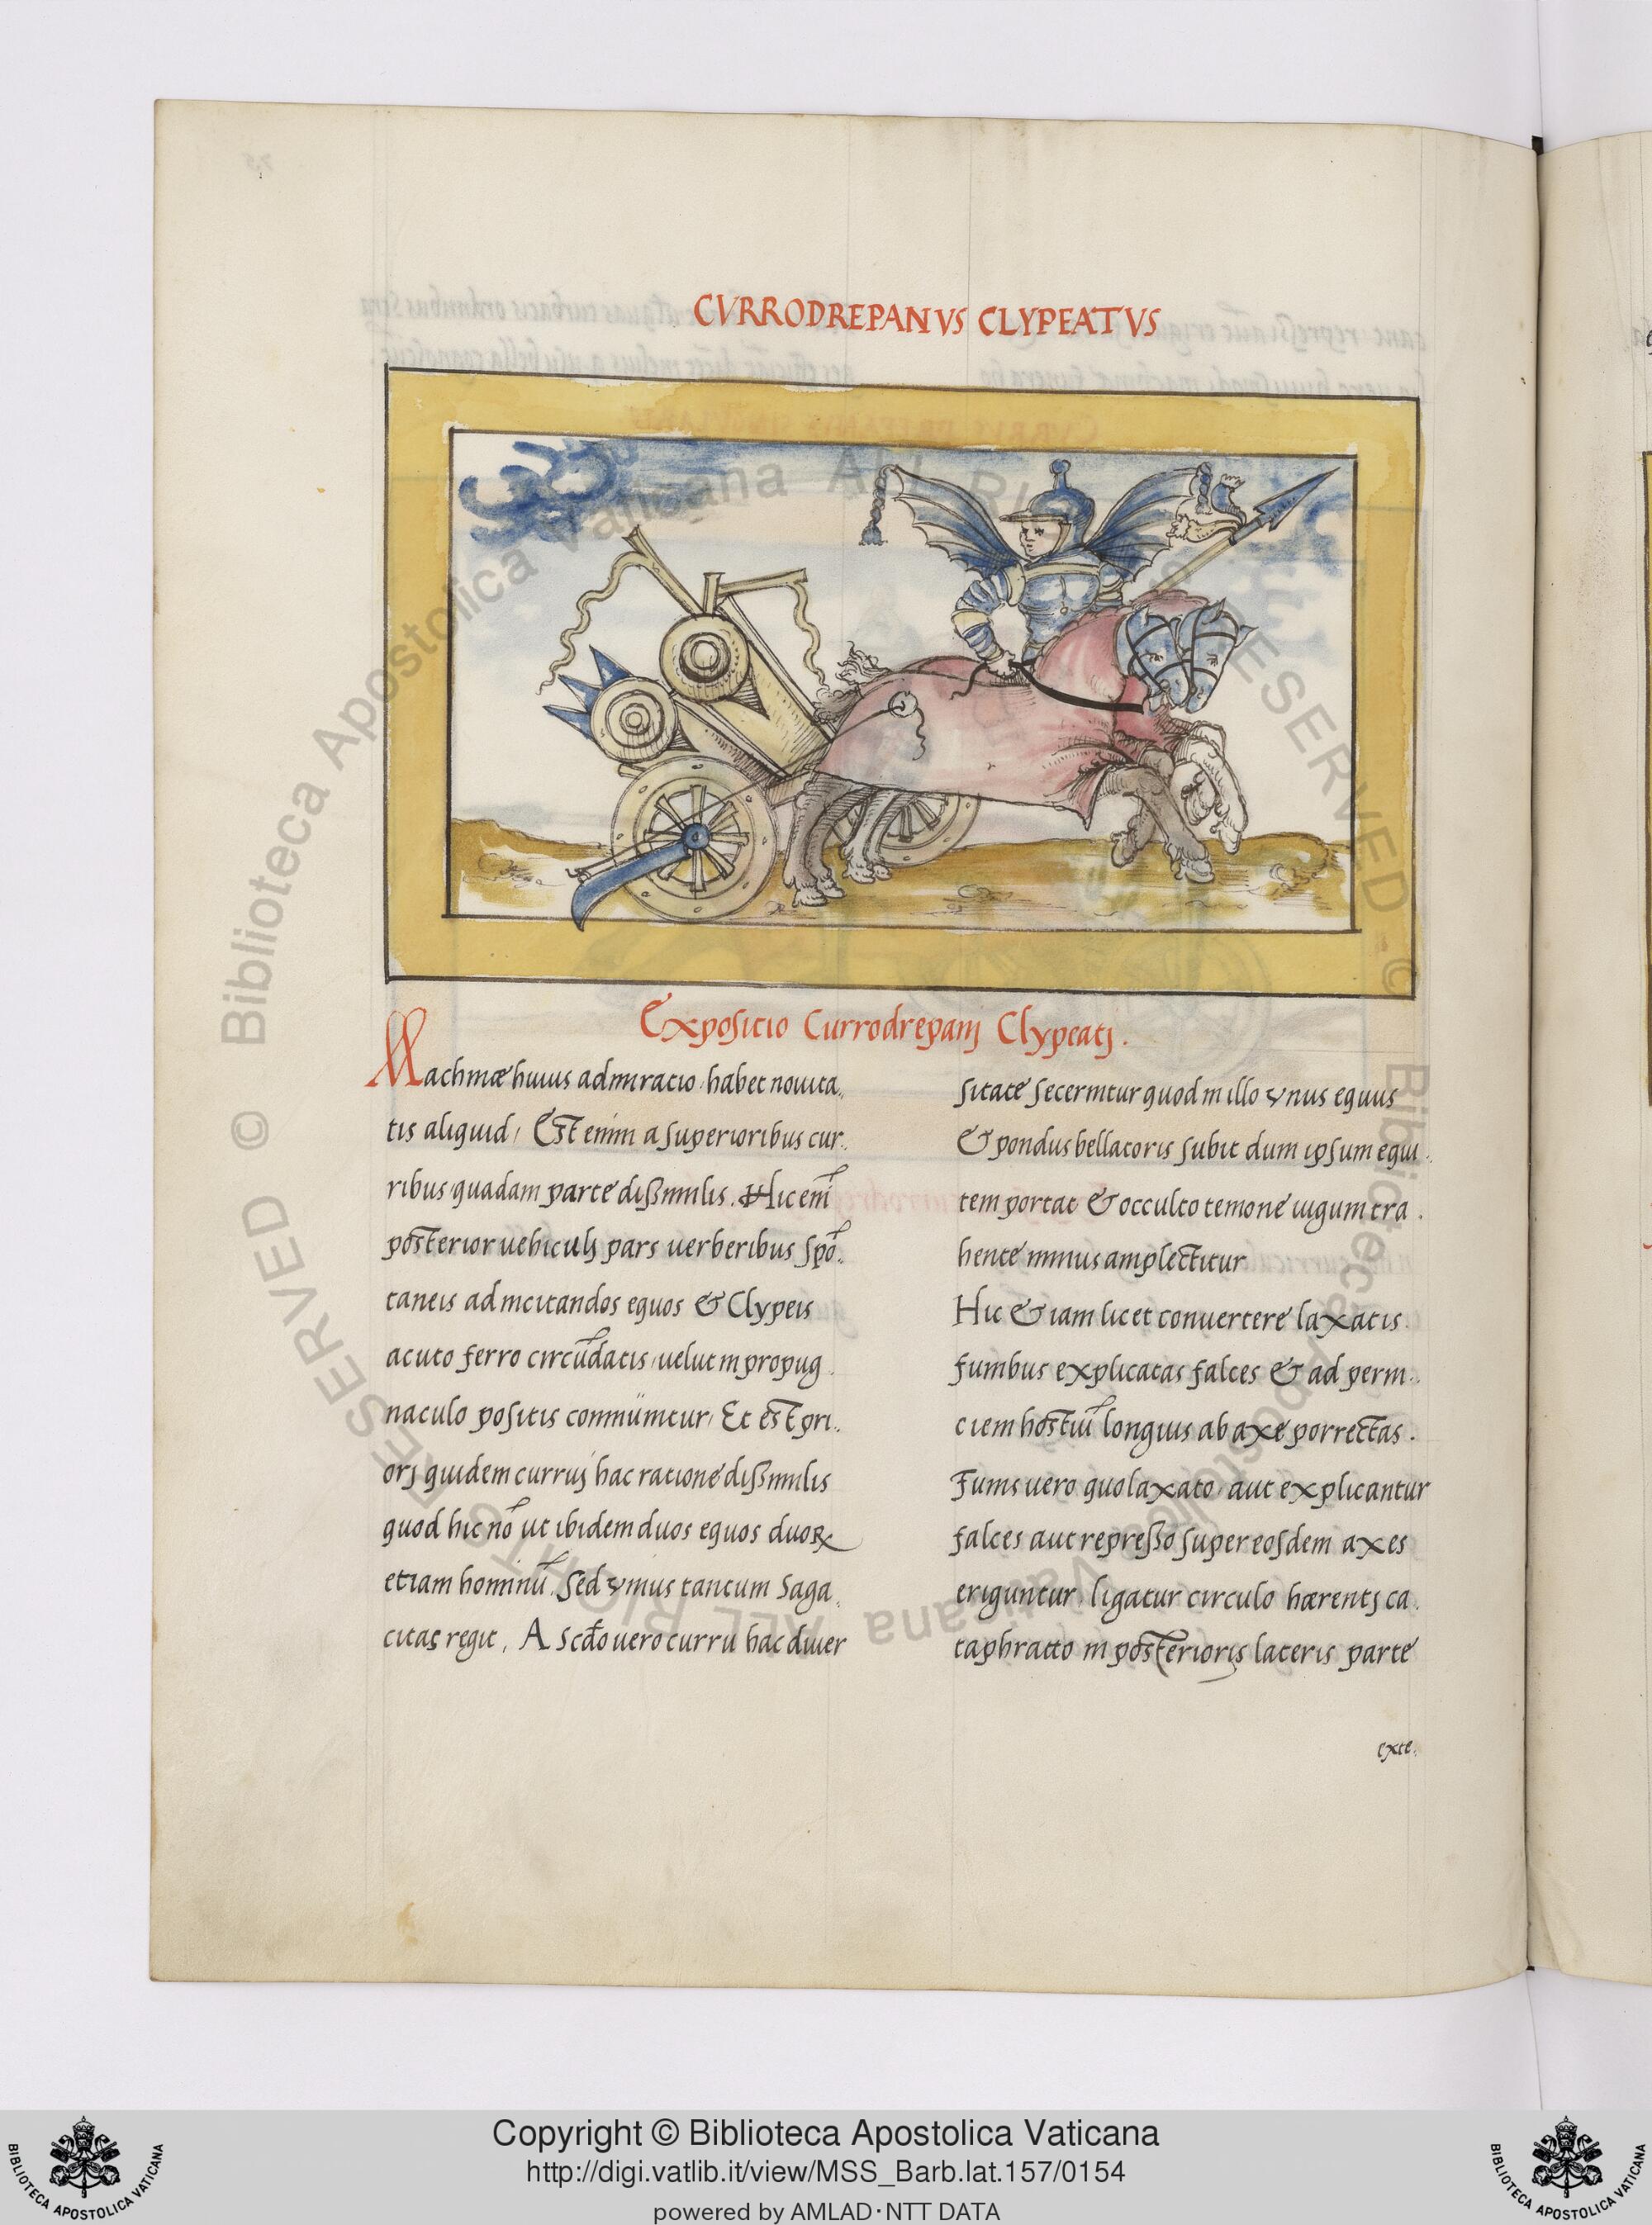 CVRRODREPANVS CLYPEATVS
Expositio Currodrepanj Clypeatj.
Machinæ huius admiratio habet nouita,
tis aliquid, Est enim a superioribus cur,
ribus quadam parte dißimilis. Hic eni͂
posterior uehiculj pars uerberibus spõ,
taneis ad incitandos equos & Clypeis
acuto ferro circũdatis uelut in propug,
naculo positis commũnitur, Et est pri,
orj quidem curruj hac ratione dißimilis
quod hic nõ ut ibidem duos equos duoꝝ
etiam hominũ. Sed vnius tantum Saga,
citas regit. A scd̃o uero curru hac diuer
sitate secernitur quod in illo vnus equus
& pondus bellatoris subit dum ipsum equi,
tem portat & occulto temone iugum tra,
hente minus amplectitur
Hic & iam licet conuertere laxatis
funibus explicatas falces & ad perni,
ciem hostiũ longius ab axe porrectas.
Funis uero quo laxato aut explicantur
falces aut represso super eosdem axes
eriguntur, ligatur circulo hærentj ca,
taphratto in posterioris lateris parte
exte,
Copyright © Biblioteca Apostolica Vaticana
http://digi.vatlib.it/view/MSS_Barb.lat.157/0154
powered by AMLAD·NTT DATA
BIBLIOTECA APOSTOLICA VATICANA
BIBLIOTECA APOSTOLICA VATICANA
© Biblioteca Apostolica Vaticana ALL RIGHTS RESERVED - © Biblioteca Apostolica Vaticana ALL RIGHTS RESERVED